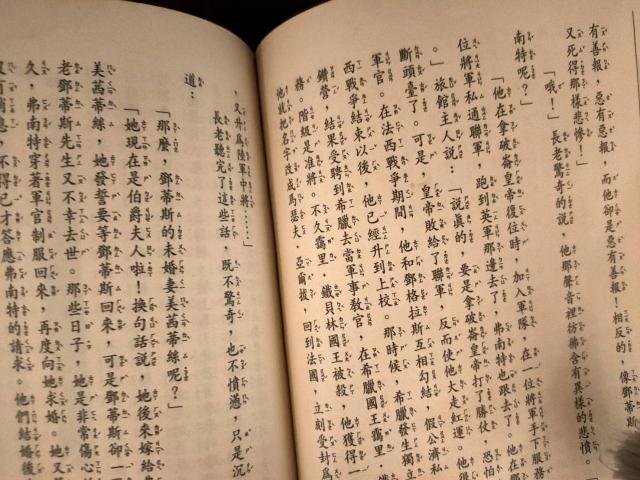 有善報，惡有惡報，而他卻是惡有善報！相反的，像鄧蒂斯
又死得那樣悲慘！」
「哦！」長老驚奇的說，他那聲音裡彷彿含有異樣的悲憤。
南特呢？」
「他在拿破崙皇帝復位時，加入軍隊，在一位將軍手下服務
位將軍私通聯軍，跑到英軍那邊去了，弗南特也跟去了。他在那
。」旅館主人說：「說真的，要是拿破崙皇帝打了勝仗，恐怕
斷頭臺了。可是，皇帝敗給了聯軍，反而使他大走紅運。他得
軍官。在法西戰爭期間，他和鄧格拉斯互相勾結，假公濟私
西戰爭結束以後，他已經升到上校。那時候，希臘發生獨立
鑽營，結果受聘到希臘去當軍事教官，在希臘國王靄里，
務。階級是准將。不久靄里．鐵貝林國王被殺，他獲得一
他就把名字改成馬瑟夫．亞爾拔，回到法國，立刻受封為
，又升為陸軍中將……」
長老聽完了這些話，既不驚奇，也不憤懣，只是沉
道：
「那麼，鄧蒂斯的未婚妻美茜蒂絲呢？」
「她現在是伯爵夫人啦！換句話說，她後來嫁給弗
美茜蒂絲，她發誓要等鄧蒂斯回來，可是鄧蒂斯卻一
老鄧蒂斯先生又不幸去世。那些日子，她是非常傷心的
久，弗南特穿著軍官制服回來，再度向她求婚。她又
沒有消息，不得已才答應弗南特的請求。他們結婚後